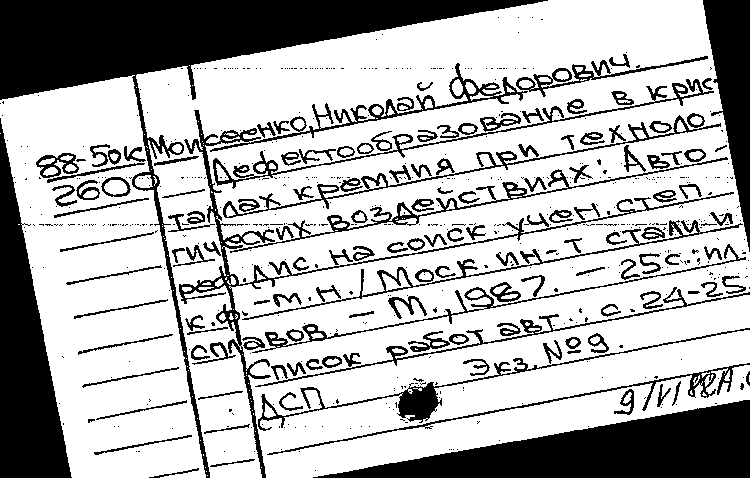 88-5ок Моисеенко, Николай Федорович.
2600 Дефектообразование в крис-
таллах кремния при техноло-
гических воздействиях: Авто-
реф. дис. на соиск. учен. степ.
к.ф.-м.н. / Моск. ин-т стали и
сплавов. - М., 1987. - 25с.: ил.
Список работ авт.: с. 24-25.
ДСП. Экз. №9.
9/VI 88